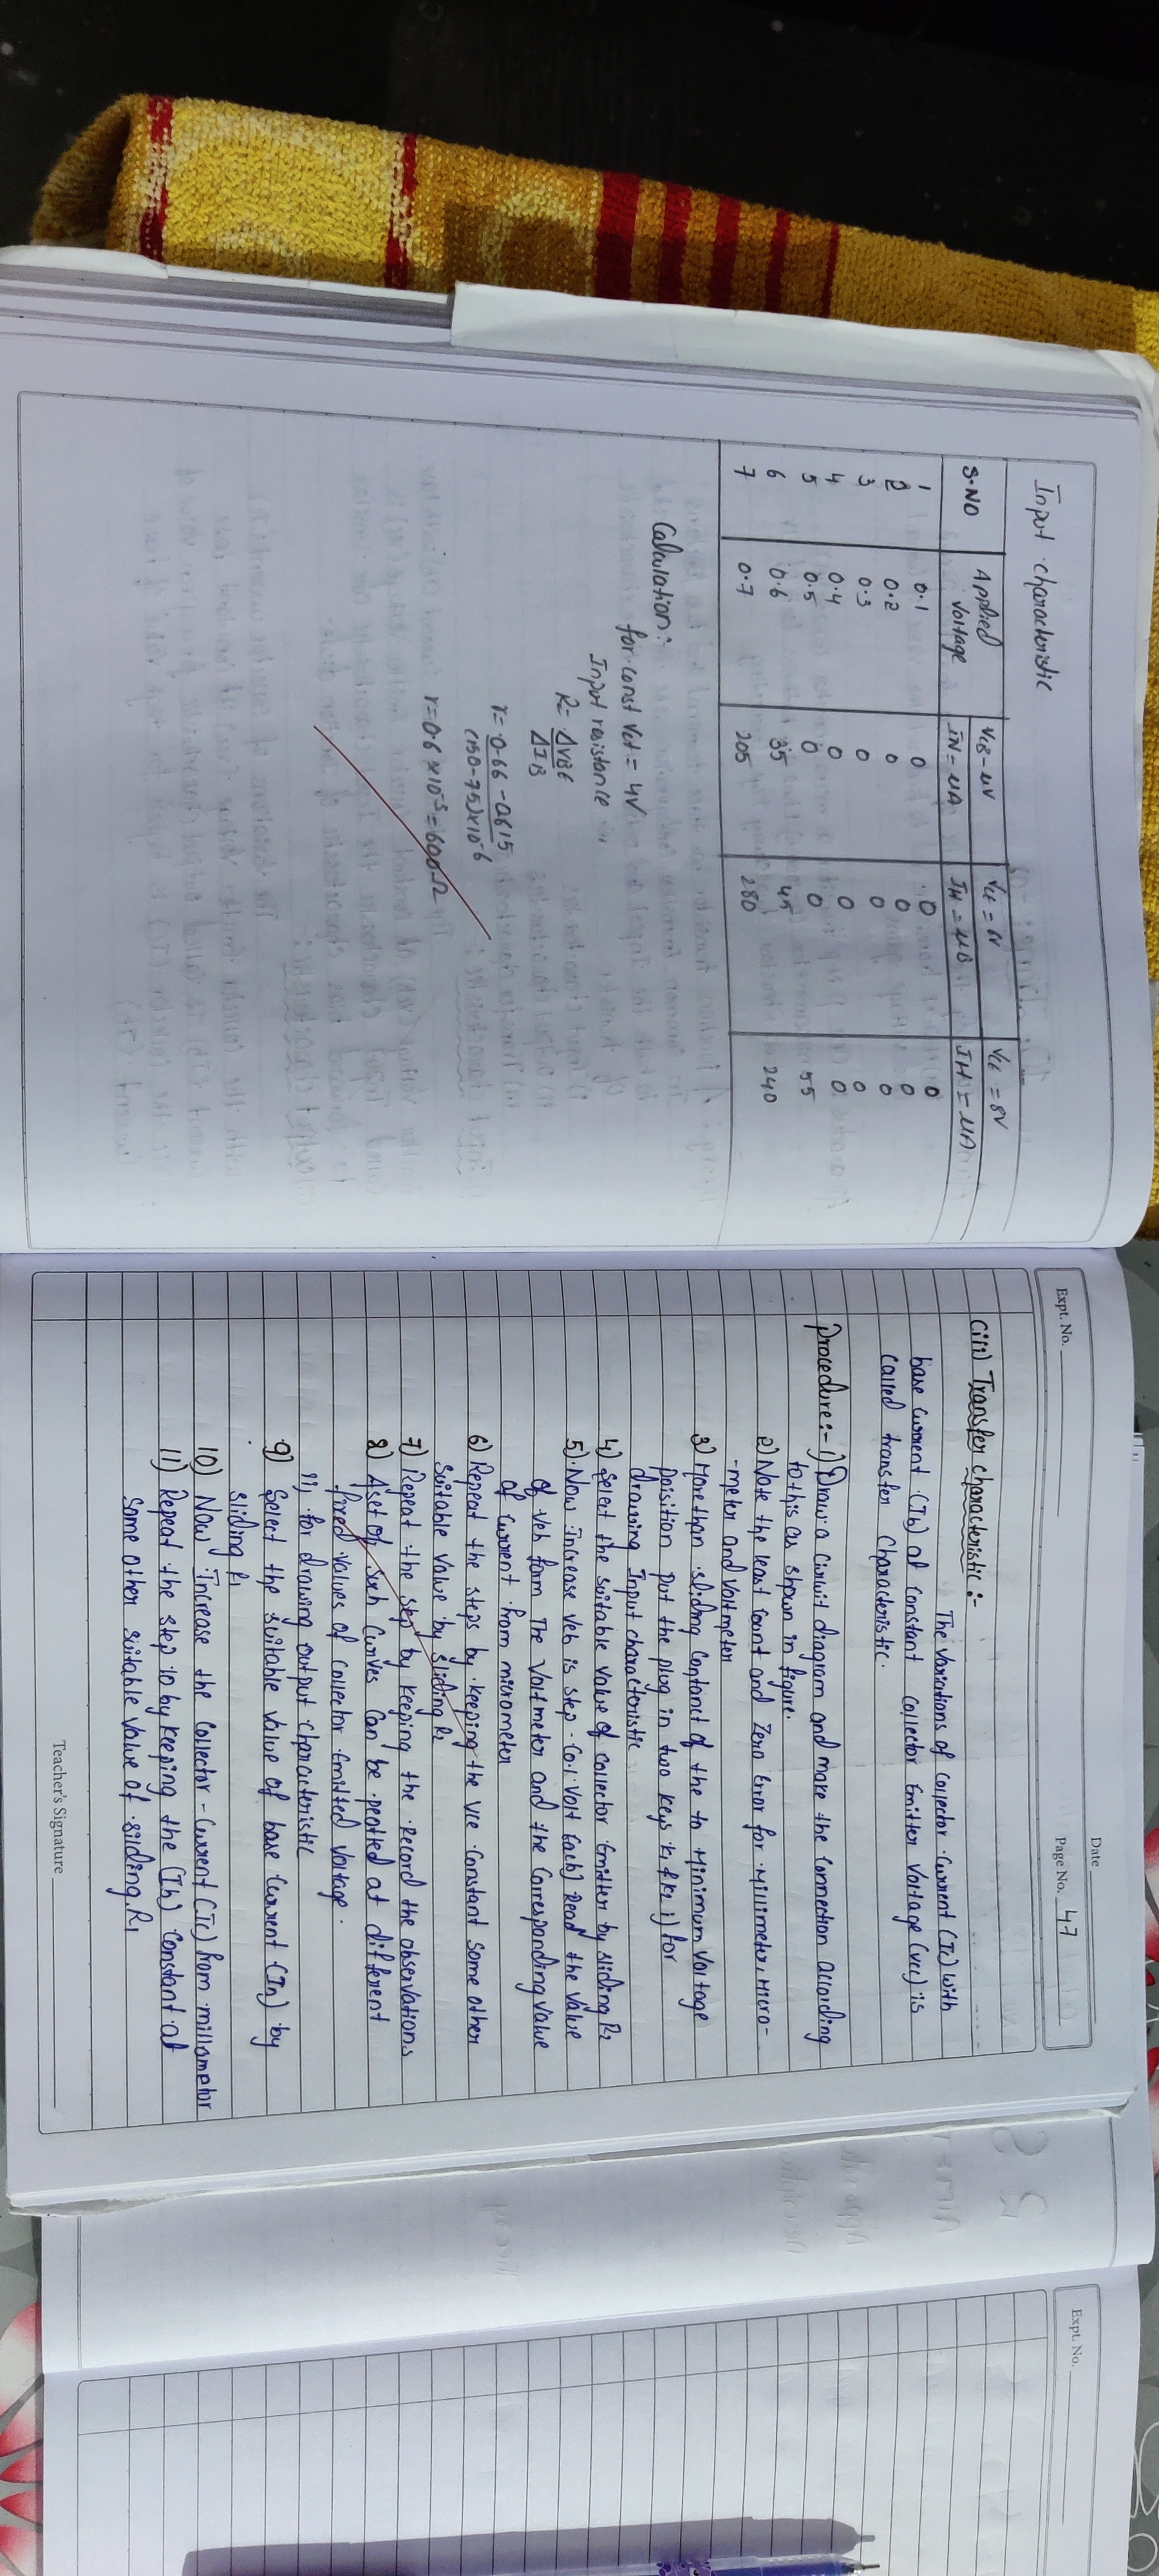 Input characteristic
S.NO Applied Voltage VCB-4V IN=μA VCE=6V IH=μB VCE=8V IH=μA
1 0.1 0 0 0
2 0.2 0 0 0
3 0.3 0 0 0
4 0.4 0 0 0
5 0.5 0 0 55
6 0.6 35 45 240
7 0.7 205 280
Calculation:
for const Vct = 4V
Input resistance
R = ΔVBE
ΔIB
r = 0.66 - 0.615
(150-75)×10⁻⁶
r = 0.6×10⁻³ = 600Ω
Expt. No.
Date
Page No. 47
(iii) Transfer characteristic :-
The variations of collector current (Ic) with
base current (Ib) at constant collector emitter voltage (Vcc) is
called transfer characteristic.
Procedure:- 1) Draw a circuit diagram and make the connection according
to this as shown in figure.
2) Note the least count and zero error for millimeter, micro-
-meter and voltmeter
3) More than sliding contanct of the to minimum voltage
poisition put the plug in two keys k1 & k2 i) for
drawing Input characteristic
4) Select the suitable value of collector emitter by sliding R2
5) Now increase Veb is step (0.1 volt each) Read the value
of Veb form The voltmeter and the corresponding value
of current from micrometer
6) Repeat the steps by keeping the vce constant some other
suitable value by sliding R2
7) Repeat the step by keeping the record the observations
8) A set of such curves can be peotted at different
fixed values of collector emitted voltage.
ii) for drawing output characteristic
9) Select the suitable value of base current (In) by
sliding R1
10) Now Increase the collector-current (Ic) from millametor
11) Repeat the step 10 by keeping the (Ib) constant at
some other suitable value of sliding R1
Teacher's Signature
Expt. No.